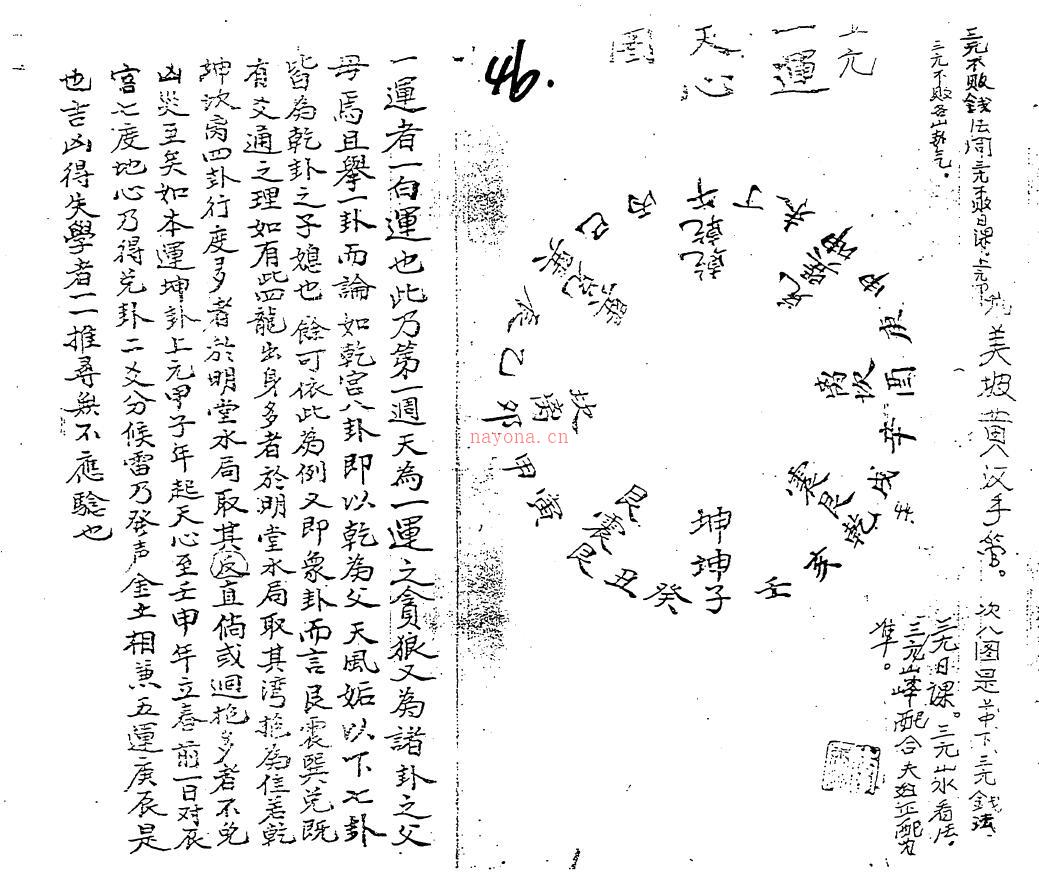 三元不败錢法同三元不敗日課。上元甲
三元不败看山斷气。
美坡黄汉手管。
次八图是上中下三元錢法
三元日課。三元山水看法。
三元山峰配合夫妇正配为
準。
上元
一運
天心
圖
46.
午 丁 未 坤 申 庚 酉 辛 戌 乾 亥 壬 子 癸 丑 艮 寅 甲 卯 乙 辰 巽 巳 丙
乾乾
巽坤兑
坎离
艮震
坤坤
震艮
离坎
兑巽
一運者一白運也此乃第一週天為一運之貪狼又為諸卦之父
母焉且舉一卦而論如乾宮八卦即以乾為父天風姤以下七卦
皆為乾卦之子媳也餘可依此為例又即象卦而言艮震巽兑既
有交通之理如有此四龍出身多者於明堂水局取其湾抱為佳若乾
坤坎离四卦行度多者於明堂水局取其反直倘或迴抱多者不免
凶災至矣如本運坤卦上元甲子年起天心至壬申年立春前一日对辰
宮七度地心乃得兑卦二爻分候雷乃發声金土相兼五運庚辰是
也吉凶得失學者一一推尋無不應驗也
nayona.cn